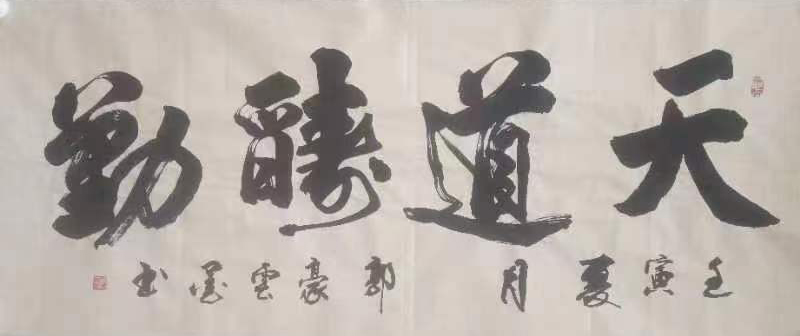 天道酬勤
壬寅夏月郭豪云墨书